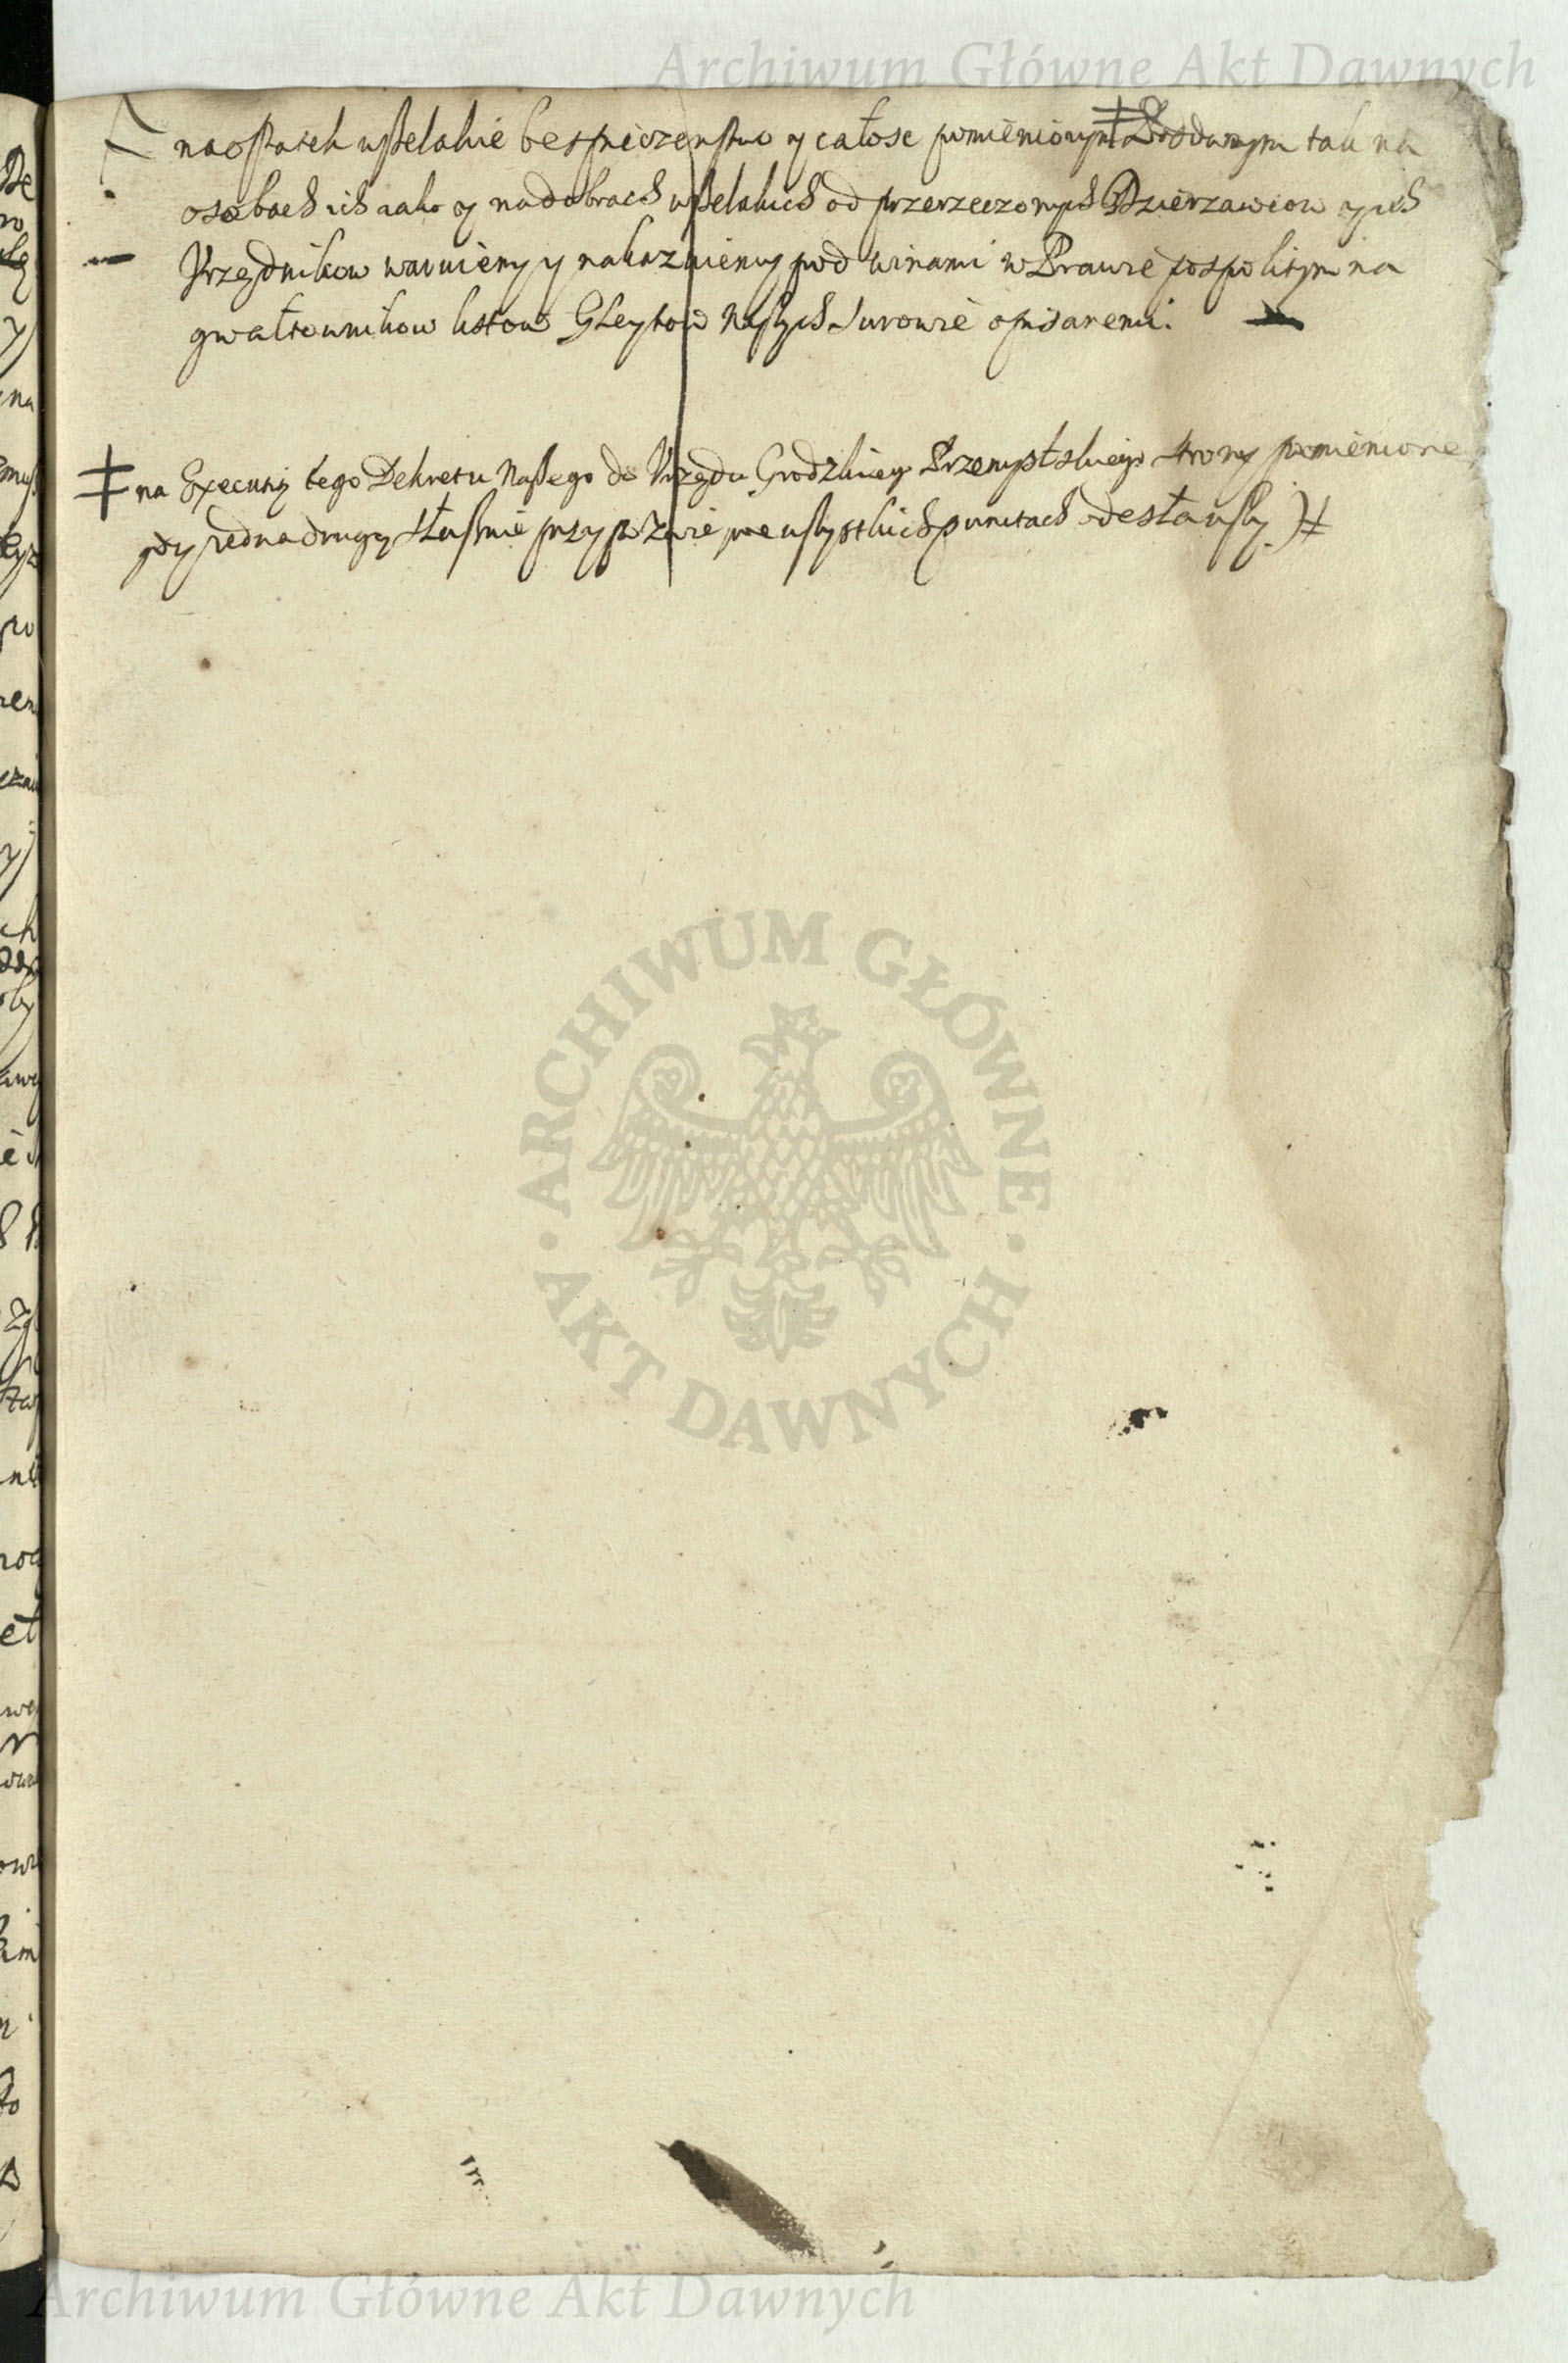 Archiwum Główne Akt Dawnych
naostatek wszelakie bespieczenstwo y całosc pomienionym ‡ Poddanym tak na
osobach ich iako y na dobrach wszelakich od przerzeczonych Dzierzawcow y ich
Vrzędnikow waruiemy y nakazuiemy pod winami w Prawie pospolitym na
gwałtownikow listow Gleytow Naszych surowie opisanemi.
‡ na Executią tego Dekretu Naszego do Vrzędu Grodzkiego Przemyslskiego strony pomienione
gdy iedna drugą słusznie przypozwie we wszystkich punctach odesławszy ) ‡
ARCHIWUM GŁÓWNE
AKT DAWNYCH
Archiwum Główne Akt Dawnych